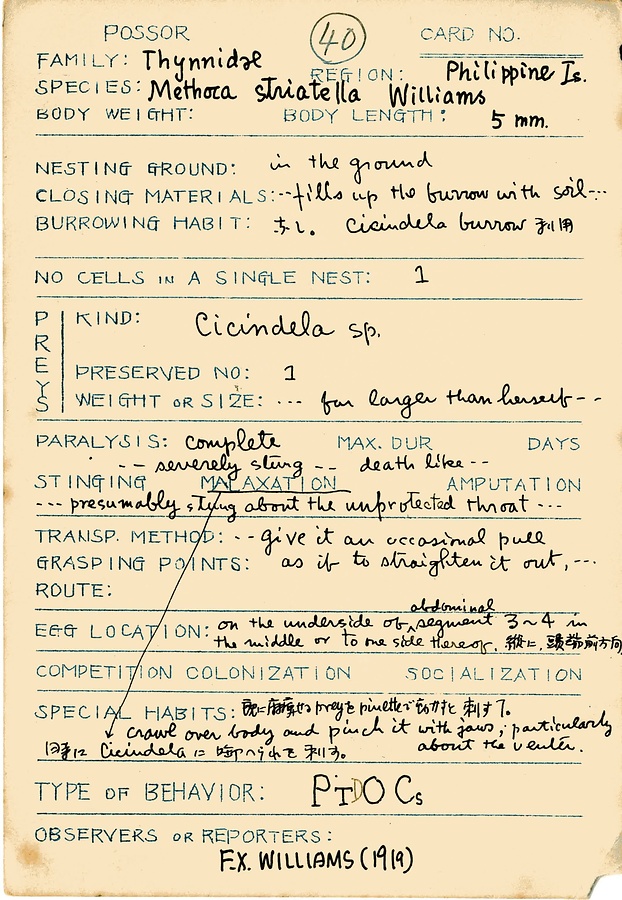 POSSOR
40
CARD NO.
FAMILY: Thynnidae
REGION: Philippine Is.
SPECIES: Methoca striatella Williams
BODY WEIGHT: BODY LENGTH: 5 mm.
NESTING GROUND: in the ground
CLOSING MATERIALS: -- fills up the burrow with soil ---
BURROWING HABIT: なし。 Cicindela burrow 利用
NO CELLS IN A SINGLE NEST: 1
PREYS
KIND: Cicindela sp.
PRESERVED NO: 1
WEIGHT OR SIZE: --- far larger than herself --
PARALYSIS: complete MAX. DUR DAYS
-- severely stung -- death like --
STINGING MALAXATION AMPUTATION
--- presumably stung about the unprotected throat ---
TRANSP. METHOD: -- give it an occasional pull
GRASPING POINTS: as if to straighten it out, ---
ROUTE:
abdominal
EGG LOCATION: on the underside of segment 3~4 in
the middle or to one side thereof. 縦に、頭端前方向
COMPETITION COLONIZATION SOCIALIZATION
SPECIAL HABITS: preyを pinetteで 刺す?。
crawl over body and pinch it with jaws, particularly
about the venter.
同時に Cicindela に 刺す。
TYPE OF BEHAVIOR: PTDOCs
OBSERVERS OR REPORTERS:
F.X. WILLIAMS (1919)